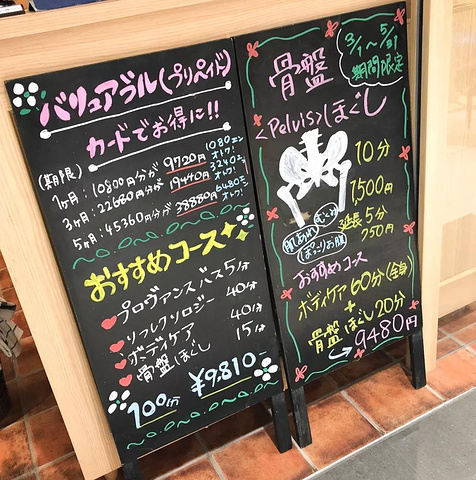 バリュアブル(プリペイド)
カードでお得に!!
(期限)
1ヶ月:10800円分が 9720円 1080エンオトク!
3ヶ月:22680円分が 19440円 3240エンオトク!
5ヶ月:45360円分が 38880円 6480エンオトク!
おすすめコース
プロヴァンスバス 5分
リフレクソロジー 40分
ボディケア 40分
骨盤ほぐし 15分
100分 ¥9,810-
3/1~5/31
期間限定
骨盤
<Pelvis>ほぐし
10分
1,500円
延長5分
750円
肌あれ
むくみ
ぽっこりお腹
おすすめコース
ボディケア60分(全身)
+
骨盤ほぐし20分
9480円